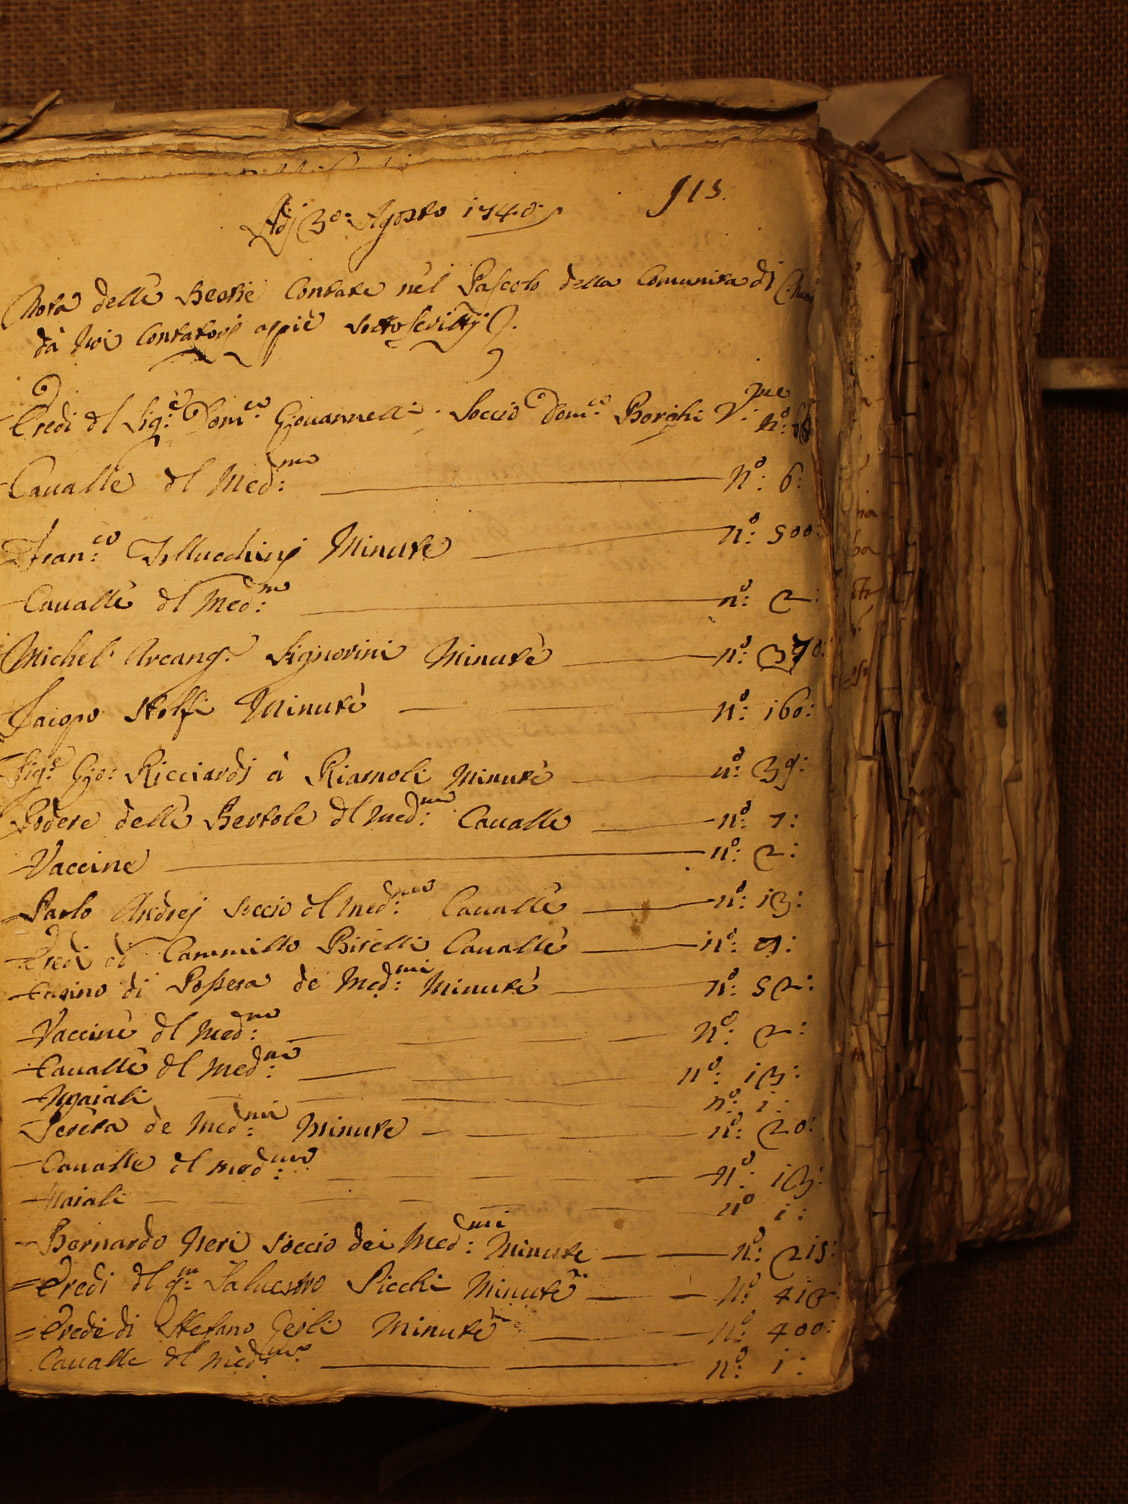 915.
Adj 30: Agosto 1740
Nota delle Bestie Contate nel Pascolo della Comunità di
dà Noi Contatori appiè sottoscritti
Eredi dl Sig:e Dom:co Giouannelli Soccio Dom:co Borghi n:o
Caualle dl Med:mo n:o 6:
Fran:co Minute n:o 500:
Caualle dl Med:mo n:o 2:
Michel Arcang: Signorini Minute n:o 370:
Jacopo Stolfi Minute n:o 160:
Sig:e Gio: Ricciardj à Minute n:o 39:
Podere delle Bertole dl Med:mo Caualle n:o 7:
Vaccine n:o 2:
Paolo Andrej soccio dl Med:mo Caualle n:o 13:
Eredi di Cammillo Caualle n:o
Casino di de Med:mi Minute n:o 52:
Vaccine dl Med:mo n:o 2:
Caualle dl Med:mo n:o 13:
Maiali n:o 1:
de Med:mi Minute n:o 20:
Caualle dl Med:mo n:o 13:
Maiali n:o 1:
Bernardo Neri soccio dei Med:mi Minute n:o 215:
Eredi dl q:m Saluestro Picchi Minute n:o
Eredi di Stefano Minute n:o 400:
Caualle dl Med:mo n:o 1: